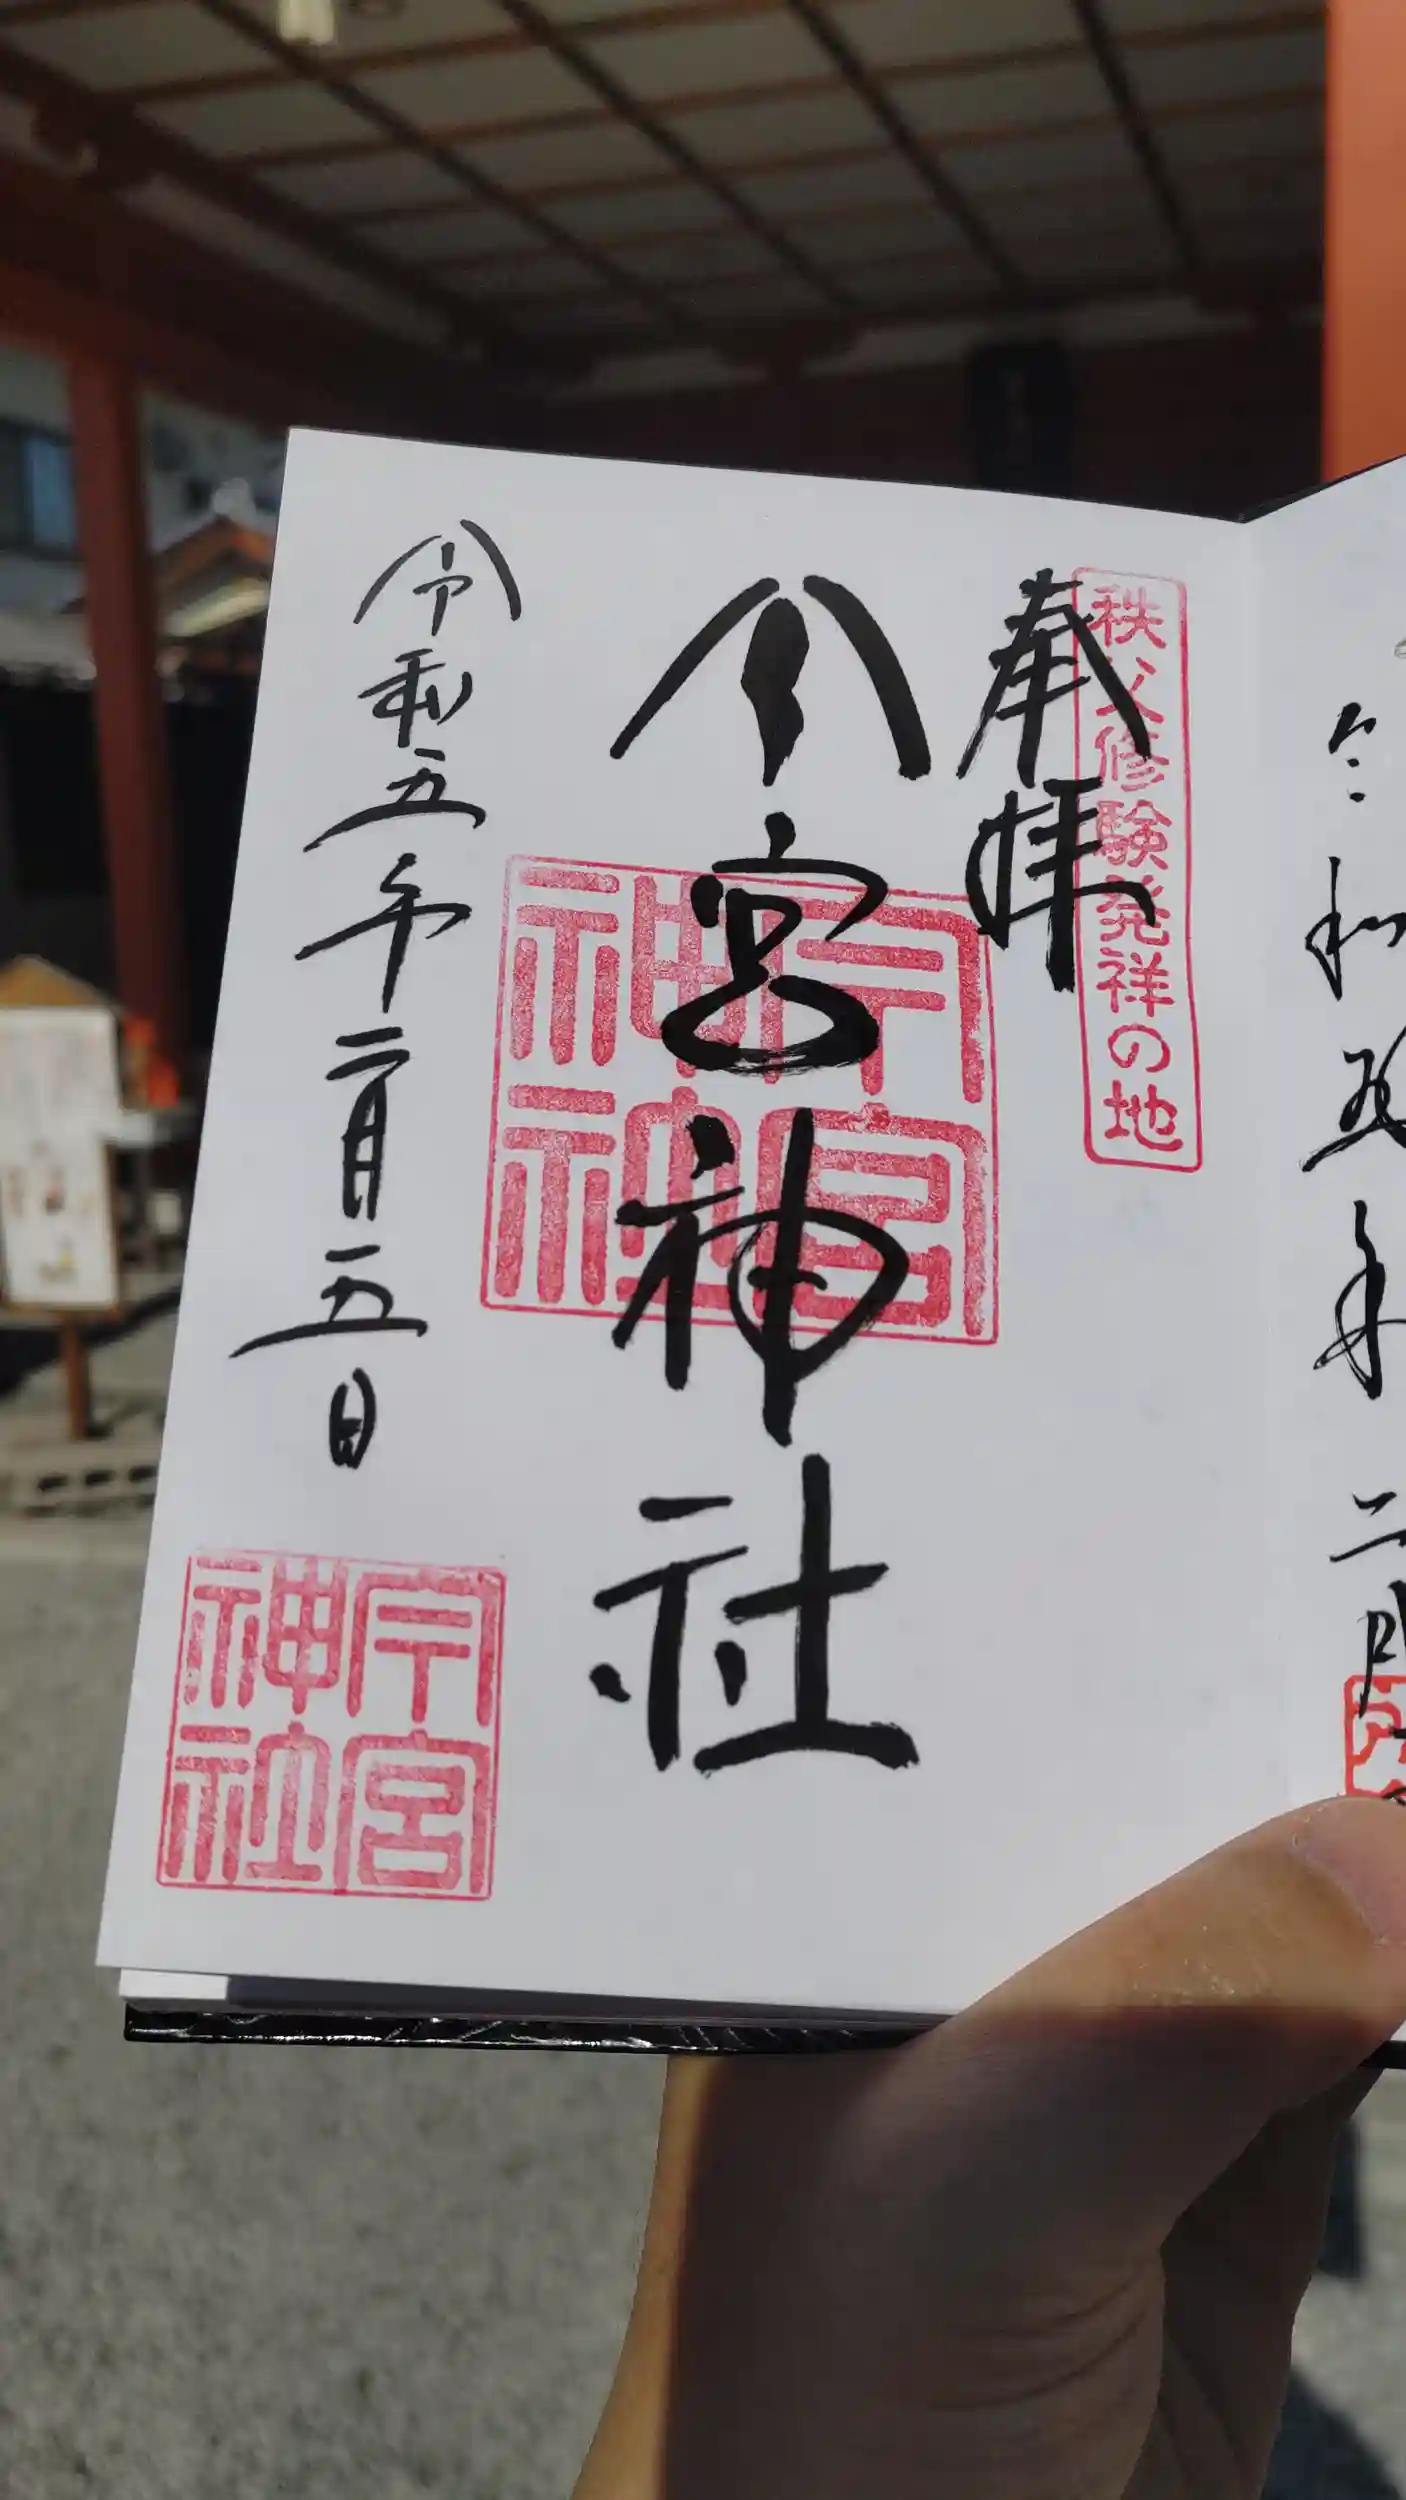 令和五年
二
秩父修験発祥の地
奉拝
今宮神社
今宮神社
令和五年二月五日
今宮神社